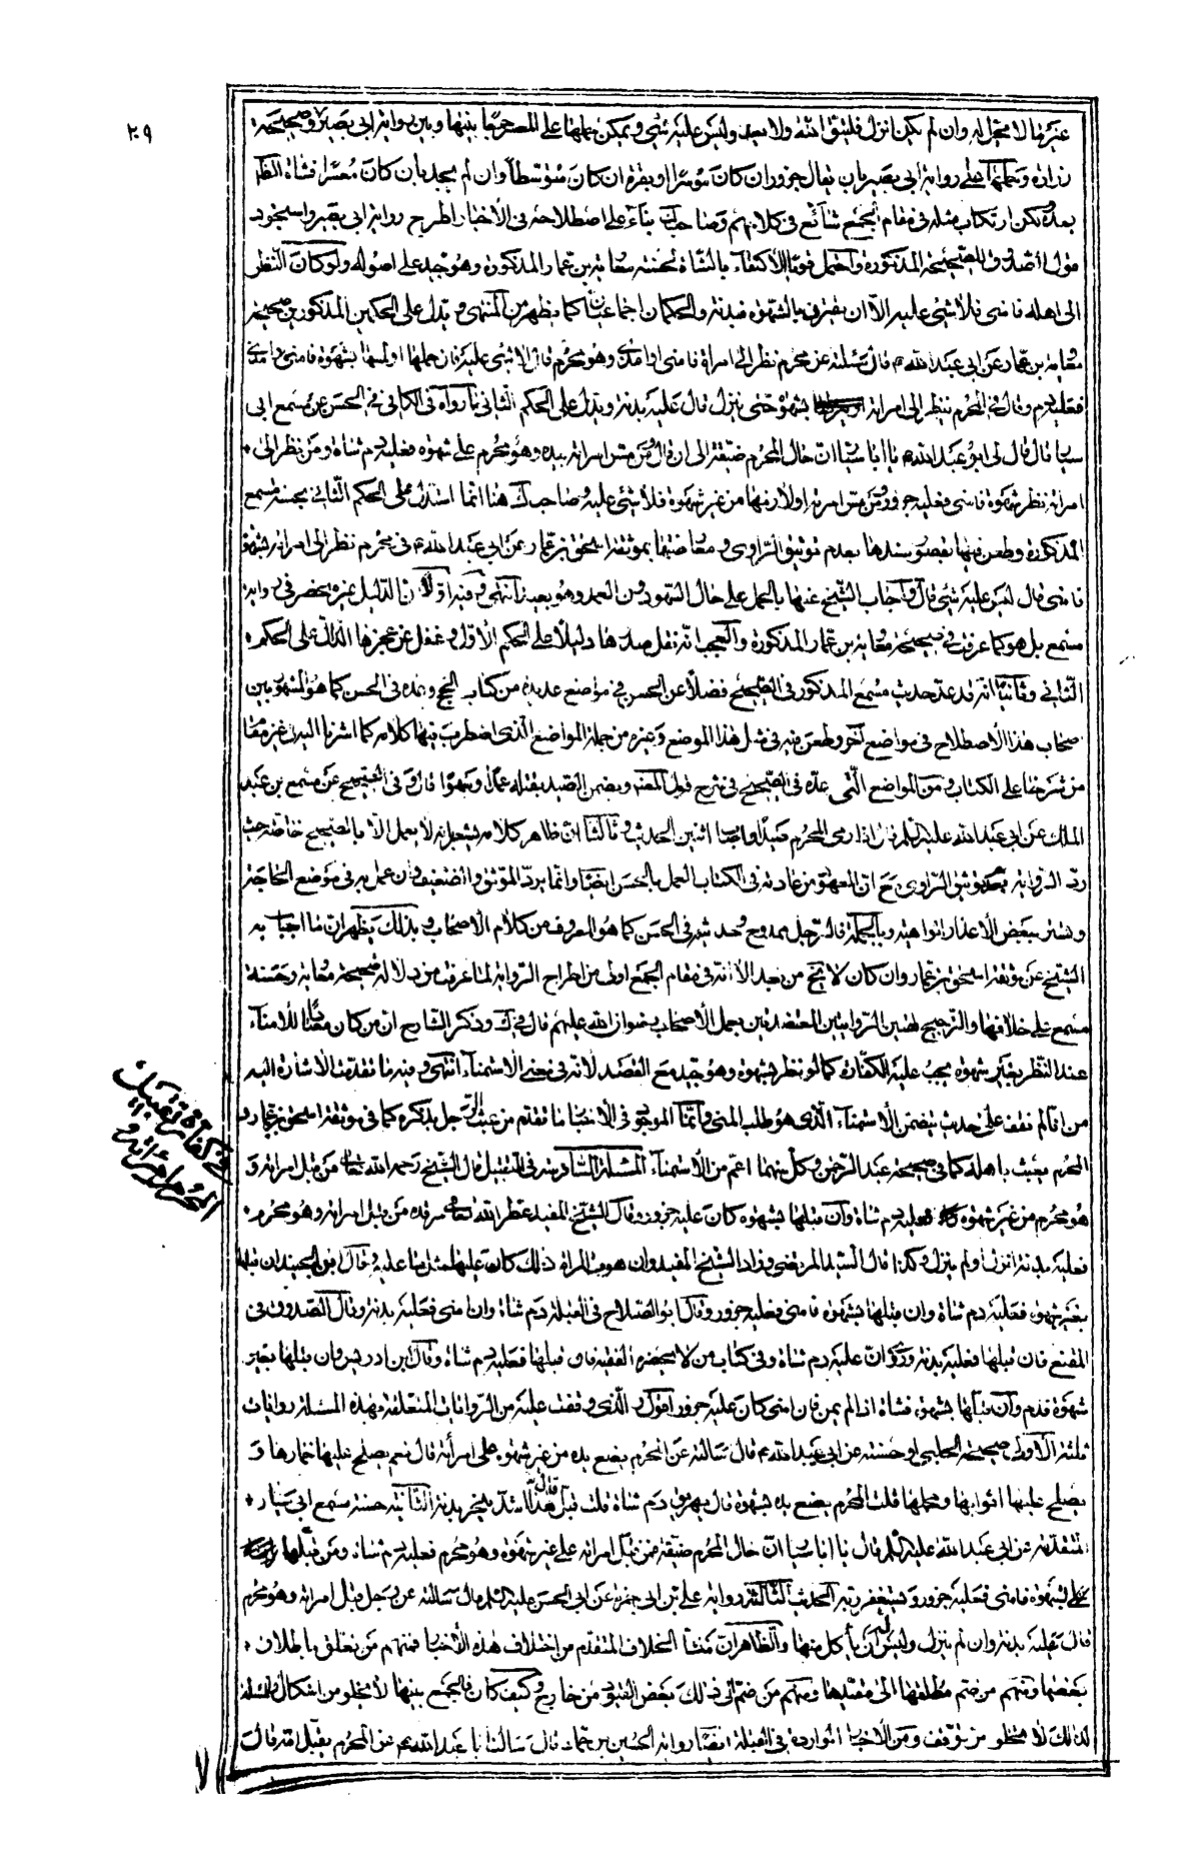 ٢٠٩
غيرنا لا يحل له وان لم يكن انزل فليتق الله ولا يعد وليس عليه شئ ويمكن حملها على بينها وبين رواية ابى بصير وصحيحة
زرارة على رواية ابى بصير بان يقال جزور ان كان موسرا او بقرة ان كان متوسطا وان لم يجد بان كان معسرا فشاة الظاهر
بعده لكن ارتكاب مثله في مقام الجمع شائع في كلامهم وصاحب ك بناء على اصطلاحه في الأخبار اطرح رواية ابى بصير واستجود
قول الصدوق للصحيحة المذكورة واحتمل قويا الاكتفاء بالشاة لحسنة معاوية بن عمار المذكورة وهو جيد على اصوله ولو كان النظر
الى اهله فامنى فلا شئ عليه الا ان يقترن بالشهوة فبدنة والحكمان اجماعيان كما يظهر من المنتهى ويدل على الحكمين المذكورين صحيحة
معاوية بن عمار عن ابى عبد الله ع قال سئلته عن محرم نظر الى امراة فامنى او امذى وهو محرم قال لا شئ عليه فان حملها او لمسها بشهوة فامنى او امذى
فعليه دم وقال في المحرم ينظر الى امراته بشهوة حتى ينزل قال عليه بدنة ويدل على الحكم الثانى ما رواه في الكافى في الحسن عن مسمع ابى
سيار قال قال لى ابو عبد الله ع يا ابا سيار ان حال المحرم ضيقة الى ان قال ومن مس امراته بيده وهو محرم على شهوة فعليه دم شاة ومن نظر الى
امراته نظر شهوة فامنى فعليه جزور ومن مس امرته او لازمها من غير شهوة فلا شئ عليه وصاحب ك هنا انما استدل على الحكم الثانى بحسنة مسمع
المذكورة وطعن فيها بقصور سندها بعدم توثيق الراوى ومعارضتها بموثقة اسحق بن عمار عن ابى عبد الله ع في محرم نظر الى امراته بشهوة
فامنى قال ليس عليه شئ قال واجاب الشيخ عنها بالحمل على حال السهو دون العمد وهو بعيد انتهى وفيه اولا ان الدليل غير منحصر في رواية
مسمع بل هو كما عرفت في صحيحة معاوية بن عمار المذكورة والعجب انه نقل صدرها دليلا على الحكم الاول وغفل عن عجزها الدال على الحكم
الثانى وثانيا انه قد عد حديث مسمع المذكور في الصحيح فضلا عن الحسن في مواضع عديدة من كتاب الحج وعده في الحسن كما هو المشهور بين
اصحاب هذا الاصطلاح في مواضع اخر وطعن فيه في مثل هذا الموضع وغيره من جملة المواضع الذى اضطرب فيها كلامه كما اشرنا اليه في غير مقام
من شرحنا على الكتاب ومن المواضع التى عده في الصحيح في شرح قول المصنف ويضمن الصيد بقتله عمدا وسهوا قال وفى الصحيح عن مسمع بن عبد
الملك عن ابى عبد الله عليه السلام قال اذا رمى المحرم صيدا واصاب اثنين الحديث وثالثا ان ظاهر كلامه يشعر بانه لا يعمل الا بالصحيح خاصة حيث
رد الرواية بعدم توثيق الراوى مع ان المعهود من عادته في الكتاب العمل بالحسن ايضا وانما يرد الموثق والضعيف وان عمل به في موضع الحاجة
وتستر ببعض الأعذار الواهية وبالجملة فالرجل ممدوح وحديثه في الحسن كما هو المعروف من كلام الاصحاب وبذلك يظهر ان ما اجاب به
الشيخ عن موثقة اسحق بن عمار وان كان لا يخ من بعد الا انه في مقام الجمع اولى من اطراح الرواية لما عرفت من دلالة صحيحة معاوية وحسنة
مسمع على خلافها والترجيح لهاتين الروايتين المعتضدتين بعمل الأصحاب رضوان الله عليهم قال في ك وذكر الشارح ان من كان معتادا للامناء
عند النظر بغير شهوة يجب عليه الكفارة كما لو نظر بشهوة وهو جيد مع القصد لانه في معنى الاستمناء انتهى وفيه ما تقدمت الاشارة اليه
من انا لم نقف على حديث يتضمن الاستمناء الذى هو طلب المنى وانما الموجود في الاخبار ما تقدم من عبث الرجل بذكره كما في موثقة اسحق بن عمار و
المحرم يعبث باهله كما في صحيحة عبد الرحمن وكل منهما اعم من الاستمناء المسئلة السادسة في التقبيل قال الشيخ رحمه الله من قبل امراته و
هو محرم من غير شهوة كان عليه دم شاة وان قبلها بشهوة كان عليه جزور وقال الشيخ المفيد عطر الله مرقده من قبل امراته وهو محرم
فعليه بدنة انزل او لم ينزل وكذا قال السيد المرتضى وزاد الشيخ المفيد وان هوت المراة ذلك كان عليها مثل ما عليه وقال ابن الجنيد ان قبلها
بغير شهوة فعليه دم شاة وان قبلها بشهوة فامنى فعليه جزور وقال ابو الصلاح في القبلة دم شاة وان امنى فعليه بدنة وقال الصدوق في
المقنع فان قبلها فعليه بدنة وروى ان عليه دم شاة وفى كتاب من لا يحضره الفقيه فان قبلها فعليه دم شاة وقال ابن ادريس وان قبلها بغير
شهوة فدم وان قبلها بشهوة فشاة اذا لم يمن فان امنى كان عليه جزور اقول والذى وقفت عليه من الروايات المتعلقة بهذه المسئلة روايات
ثلثة الاولى صحيحة الحلبى او حسنته عن ابى عبد الله ع قال سالته عن المحرم يضع يده من غير شهوة على امرأته قال نعم يصلح عليها خمارها و
يصلح عليها اثوابها ومحملها قلت المحرم يضع يده بشهوة قال يهريق دم شاة قلت قبل قال هذا اشد ينحر بدنة الثانية حسنة مسمع ابى سيار
المتقدمة عن ابى عبد الله عليه السلام قال يا ابا سيار ان حال المحرم ضيقة فمن قبل امراته على غير شهوة وهو محرم فعليه دم شاة ومن قبلها
على شهوة فامنى فعليه جزور ويستغفر ربه الحديث الثالثة رواية على بن ابى حمزة عن ابى الحسن عليه السلام قال سالته عن رجل قبل امراته وهو محرم
قال عليه بدنة وان لم ينزل وليس له ان يأكل منها والظاهر ان منشأ الخلاف المتقدم من اختلاف هذه الاخبار فمنهم من تعلق باطلاق
بعضها ومنهم من ضم مطلقها الى مقيدها ومنهم من ضم الى ذلك بعض القيود من خارج وكيف كان فالجمع بينها لا يخلو من اشكال والمسئلة
لذلك لا تخلو من توقف ومن الاخبار الواردة في القبلة ايضا رواية الحسين بن حماد قال سالت ابا عبد الله ع عن المحرم يقبل امه قال
في كفارة تقبيل
المحرم امراته
لا